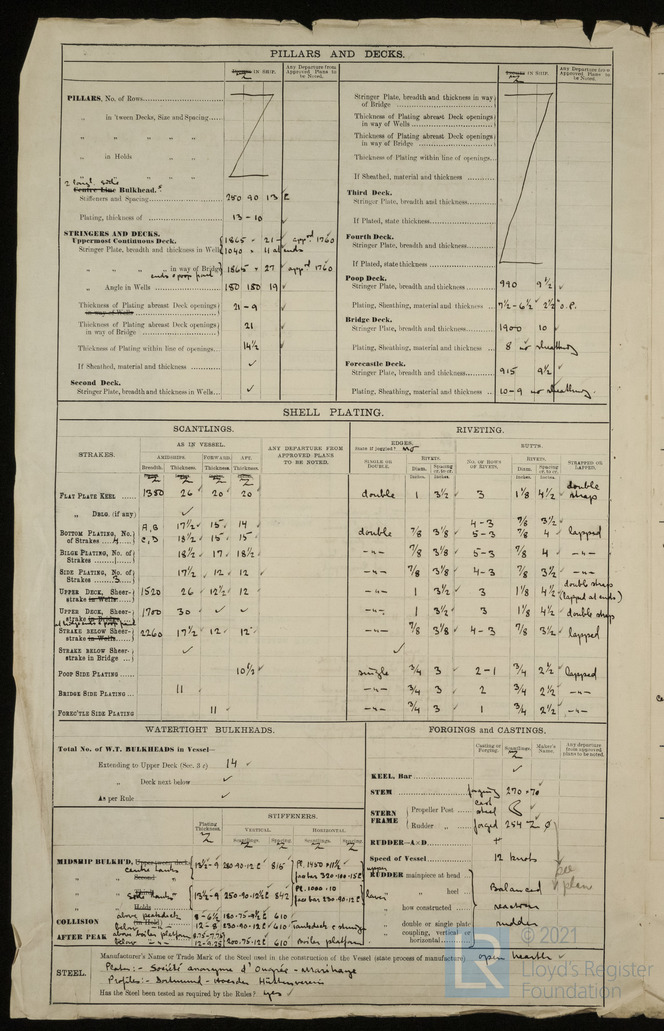 PILLARS AND DECKS.
IN SHIP.
Any Departure from Approved Plans to be Noted.
PILLARS, No. of Rows
„ in 'tween Decks, Size and Spacing
„ „ „ „
„ in Holds „ „
„ „ „ „
Centre Line Bulkhead.
Stiffeners and Spacing 250 90 13
Plating, thickness of 13 - 10
STRINGERS AND DECKS.
Uppermost Continuous Deck.
Stringer Plate, breadth and thickness in Wells 1865 - 21 app'd 1760
1040 × 11 at ends
„ „ „ „ in way of Bridge 1865 × 27 app'd 1760
ends & poop front
„ Angle in Wells 150 150 19
Thickness of Plating abreast Deck openings in way of Wells 21 - 9
Thickness of Plating abreast Deck openings in way of Bridge 21
Thickness of Plating within line of openings 14½
If Sheathed, material and thickness ✓
Second Deck.
Stringer Plate, breadth and thickness in Wells ✓
IN SHIP.
Any Departure from Approved Plans to be Noted.
Stringer Plate, breadth and thickness in way of Bridge
Thickness of Plating abreast Deck openings in way of Wells
Thickness of Plating abreast Deck openings in way of Bridge
Thickness of Plating within line of openings
If Sheathed, material and thickness
Third Deck.
Stringer Plate, breadth and thickness
If Plated, state thickness
Fourth Deck.
Stringer Plate, breadth and thickness
If Plated, state thickness
Poop Deck.
Stringer Plate, breadth and thickness 990 9½
Plating, Sheathing, material and thickness 7½ - 6½ 2½" O.P.
Bridge Deck.
Stringer Plate, breadth and thickness 1900 10
Plating, Sheathing, material and thickness 8 no sheathing
Forecastle Deck.
Stringer Plate, breadth and thickness 915 9½
Plating, Sheathing, material and thickness 10-9 no sheathing
SHELL PLATING.
SCANTLINGS.
RIVETING.
STRAKES.
AS IN VESSEL.
AMIDSHIPS. FORWARD. AFT.
Breadth. Thickness. Thickness. Thickness.
ANY DEPARTURE FROM APPROVED PLANS TO BE NOTED.
EDGES.
State if joggled? no
SINGLE OR DOUBLE.
RIVETS.
Diam. Spacing cr. to cr.
Inches. Inches.
BUTTS.
NO. OF ROWS OF RIVETS.
RIVETS.
Diam. Spacing cr. to cr.
Inches. Inches.
STRAPPED OR LAPPED.
FLAT PLATE KEEL 1380 26 20 20 double 1 3½ 3 1⅛ 4½ double straps
„ DBLG. (if any) ✓
BOTTOM PLATING, No. of Strakes 4 A,B 17½ 15 14 4-3 ⅞ 3½
C,D 18½ 15 15 double ⅞ 3⅛ 5-3 ⅞ 4 lapped
BILGE PLATING, No. of Strakes 1 18½ 17 18½ -"- ⅞ 3⅛ 5-3 ⅞ 4 -"-
SIDE PLATING, No. of Strakes 3 17½ 12 12 -"- ⅞ 3⅛ 4-3 ⅞ 3½ -"-
UPPER DECK, Sheerstrake in Wells 1520 26 12½ 12 -"- 1 3½ 3 1⅛ 4½ double straps (lapped at ends)
UPPER DECK, Sheerstrake in Bridge 1700 30 ✓ ✓ -"- 1 3½ 3 1⅛ 4½ double straps
STRAKE BELOW Sheerstrake in Wells 2260 17½ 12 12 -"- ⅞ 3⅛ 4-3 ⅞ 3½ lapped
STRAKE BELOW Sheerstrake in Bridge ✓ ✓
POOP SIDE PLATING 10½ single ¾ 3 2-1 ¾ 2½ lapped
BRIDGE SIDE PLATING 11 -"- ¾ 3 2 ¾ 2½ -"-
FOREC'TLE SIDE PLATING 11 -"- ¾ 3 1 ¾ 2½ -"-
WATERTIGHT BULKHEADS.
Total No. of W.T. BULKHEADS in Vessel—
Extending to Upper Deck (Sec. 3 c) 14 ✓
„ Deck next below ✓
As per Rule ✓
Plating Thickness.
STIFFENERS.
VERTICAL. HORIZONTAL.
Scantlings. Spacing. Scantlings. Spacing.
MIDSHIP BULKH'D, centre tanks 13½-9 280·90·12 815 Pl. 1450 × 11½
face bar 320·100·15
side tanks 13½-9 250·90·12½ 842 Pl. 1000·10
face bar 230·90·12
„ Holds
COLLISION above peak deck 8-6½ 180·75·9½ 610
below -"- 12-8 230·90·12 610
AFTER PEAK above boiler platform 8.75-7.75
below -"- 12-9.25 200·75·12 610 boiler platform
FORGINGS and CASTINGS.
Casting or Forging.
Scantlings.
Maker's Name.
Any departure from approved plans to be noted.
KEEL, Bar ✓
STEM forging 270 × 70
STERN FRAME
Propeller Post cast steel
Rudder „ forged 254
RUDDER—A×D
Speed of Vessel 12 knots
RUDDER mainpiece at head
„ „ heel
„ how constructed
„ double or single plate
„ coupling, vertical or horizontal
Balanced
reaction
rudder
see plan
STEEL.
Manufacturer's Name or Trade Mark of the Steel used in the construction of the Vessel (state process of manufacture) open hearth
Plates:- Société anonyme d'Ougrée-Marihaye
Profiles:- Dortmund-Hoerder Hüttenverein
Has the Steel been tested as required by the Rules? yes
© 2021
LR
Lloyd's Register
Foundation